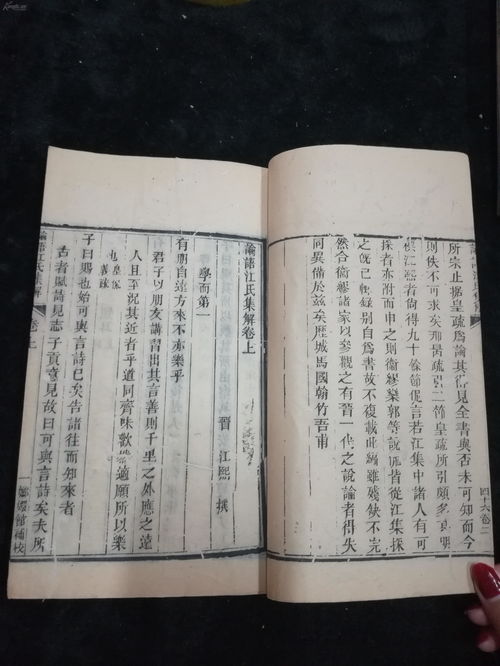 所宗止據皇疏爲論其得見全書與否未可知而今
則佚不可求矣邢昺疏引二節皇疏所引頗多具
稱江熙者尙得九十餘節侃言若江集中諸人有可
採者亦附而申之則衞繆樂郭等說俱皆從江集採
之旣已輯錄別自爲書故不複載此編雖殘佚不完
然合衞繆諸家以參觀之有晉一代之說論者得失
同異備於兹矣歷城馬國翰竹吾甫
四六卷二
論語江氏集解卷上
晉 江熙 撰
學而第一
有朋自遠方來不亦樂乎
君子以朋友講習出其言善則千里之外應之遠
人且至況其近者乎道同齊味歡然適願所以樂
也皇侃
義疏
子曰賜也始可與言詩已矣告諸往而知來者
古者賦詩見志子貢意見故曰可與言詩矣夫所
論語江氏集解
卷上
一
嫏嬛館補校